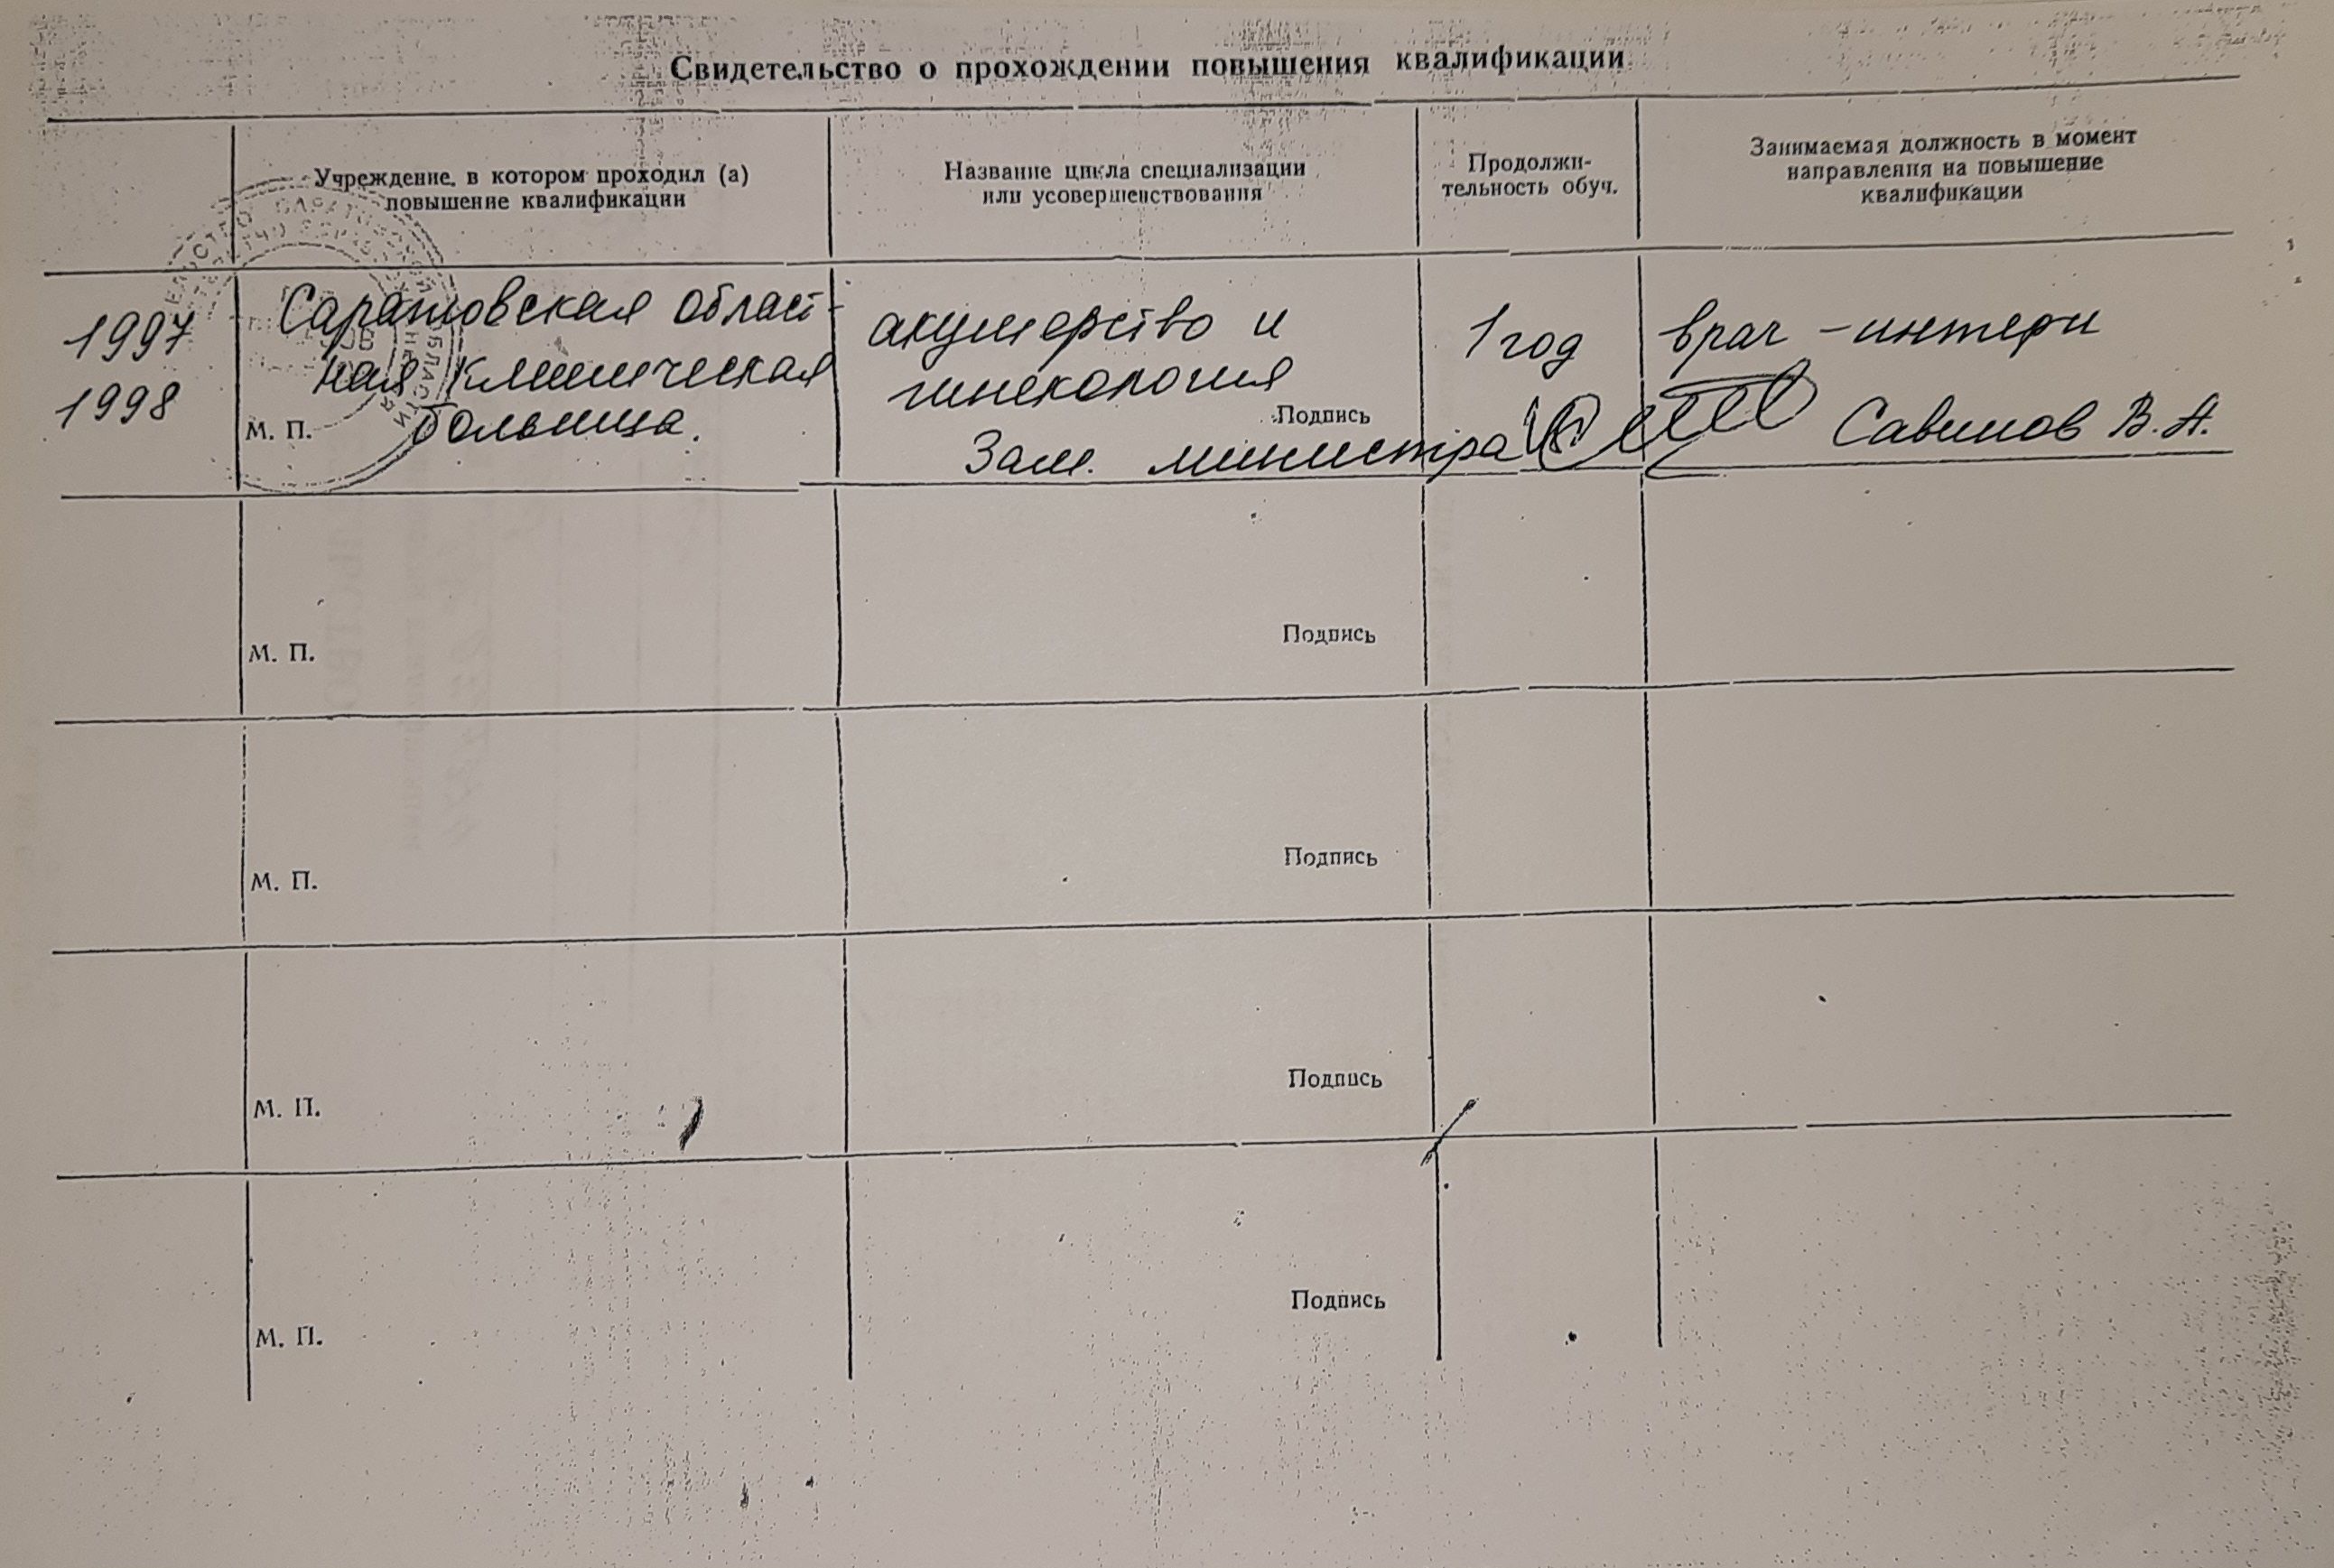 Свидетельство о прохождении повышения квалификации
Учреждение, в котором проходил (а)
повышение квалификации
Название цикла специализации
или усовершенствования
Продолжи-
тельность обуч.
Занимаемая должность в момент
направления на повышение
квалификации
1997
1998
Саратовская област-
ная клиническая
больница.
М. П.
акушерство и
гинекология
Подпись
Зам. министра
1 год
врач - интерн
Савинов В. А.
М. П.
Подпись
М. П.
Подпись
М. П.
Подпись
М. П.
Подпись